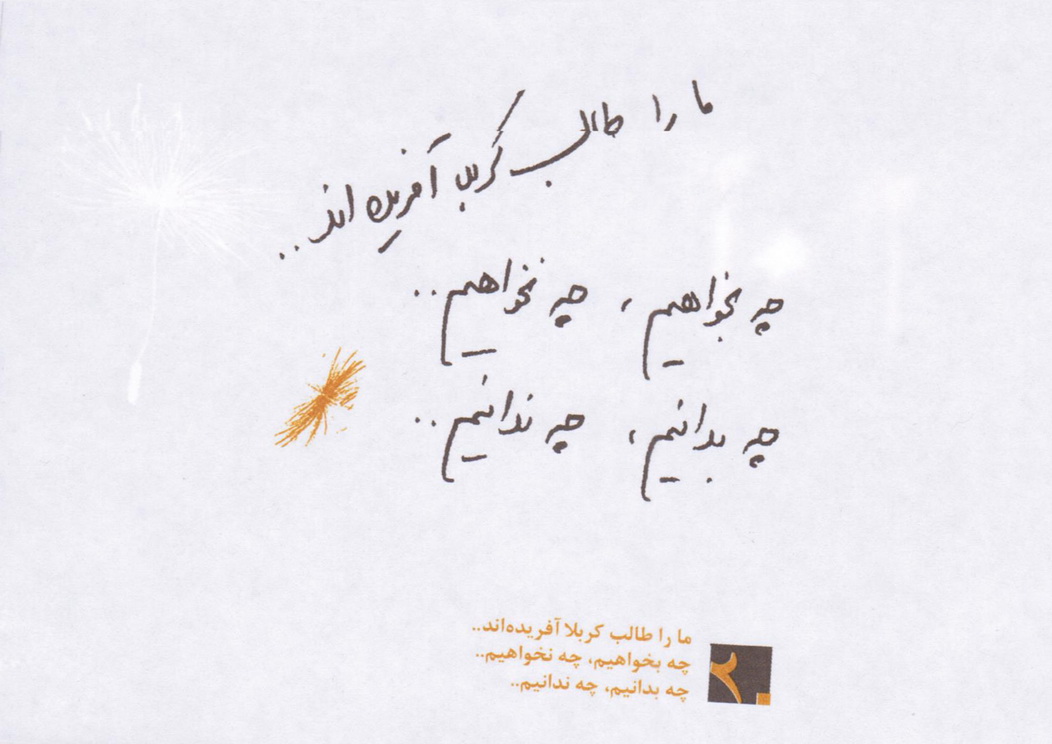 ما را طالب کربلا آفریده اند..
چه بخواهیم، چه نخواهیم..
چه بدانیم، چه ندانیم..
ما را طالب کربلا آفریده‌اند..
چه بخواهیم، چه نخواهیم..
چه بدانیم، چه ندانیم..
۲